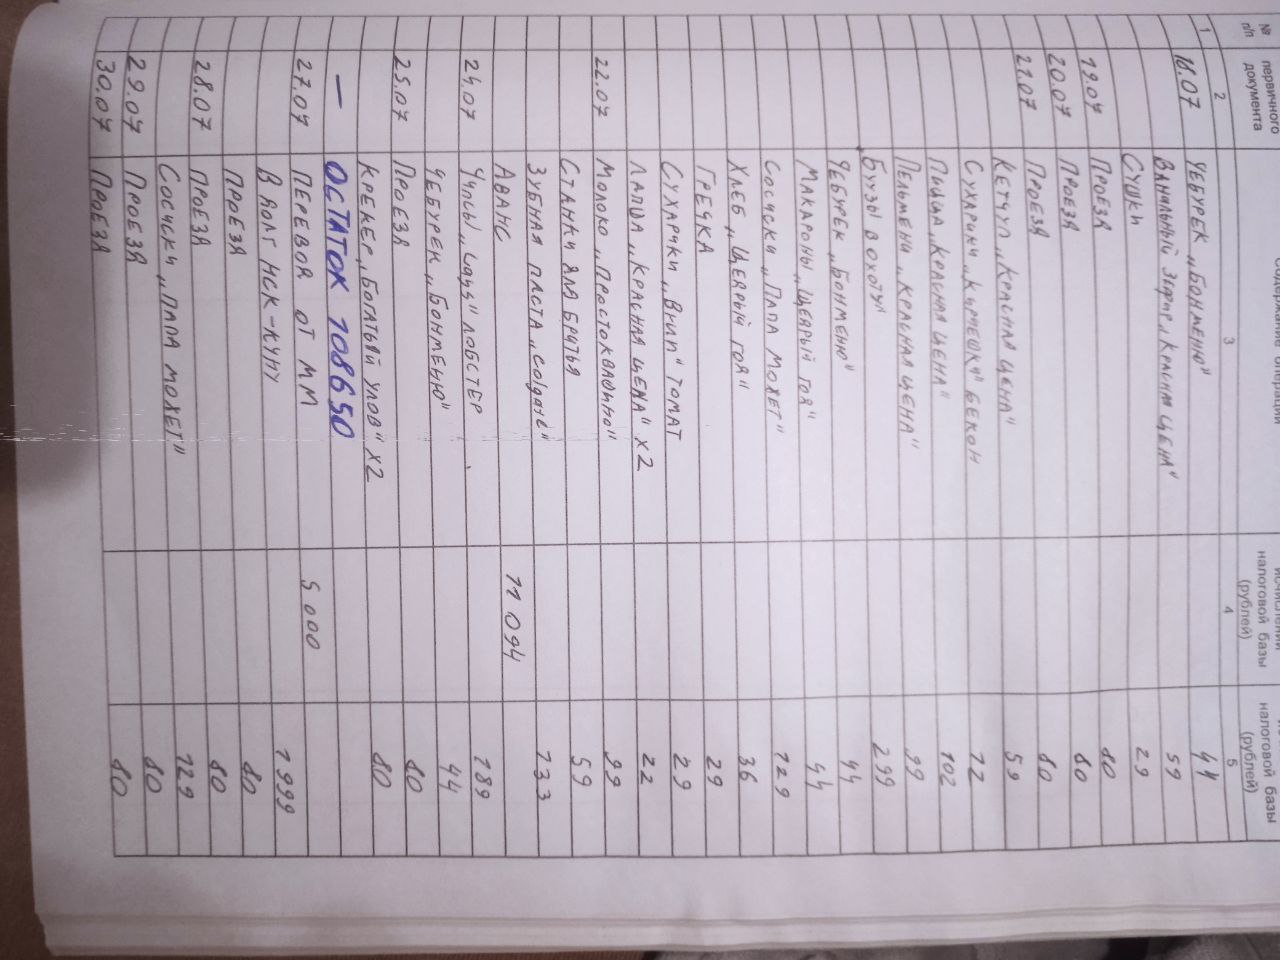 № п/п
первичного документа
Содержание операции
исчислении налоговой базы (рублей)
налоговой базы (рублей)
1 2 3 4 5
18.07 ЧЕБУРЕК „БОНМЕНЮ" 44
ВАНИЛЬНЫЙ Зефир „КРАСНАЯ ЦЕНА" 59
СУШКИ 29
19.07 ПРОЕЗД 80
20.07 ПРОЕЗД 80
21.07 ПРОЕЗД 80
КЕТЧУП „КРАСНАЯ ЦЕНА" 59
СУХАРИКИ „КИРИЕШКИ" БЕКОН 72
ПИЦЦА „КРАСНАЯ ЦЕНА" 102
ПЕЛЬМЕНИ „КРАСНАЯ ЦЕНА" 99
БУУЗЫ В ОХОТУ! 299
ЧЕБУРЕК „БОНМЕНЮ" 44
МАКАРОНЫ „ЩЕДРЫЙ ГОД" 44
СОСИСКИ „ПАПА МОЖЕТ" 129
ХЛЕБ „ЩЕДРЫЙ ГОД" 36
ГРЕЧКА 29
СУХАРИКИ „ВНИП" ТОМАТ 29
ЛАПША „КРАСНАЯ ЦЕНА" Х2 22
22.07 МОЛОКО „ПРОСТОКВАШИНО" 99
СТАНКИ ДЛЯ БРИТЬЯ 59
ЗУБНАЯ ПАСТА „Colgate" 133
АВАНС 11 094
24.07 ЧИПСЫ „Lays" ЛОБСТЕР 189
ЧЕБУРЕК „БОНМЕНЮ" 44
25.07 ПРОЕЗД 80
КРЕКЕР „БОГАТЫЙ УЛОВ" Х2 80
— ОСТАТОК 108650
27.07 ПЕРЕВОД ОТ ММ 5 000
В ДОЛГ НСК-КУПУ 1999
ПРОЕЗД 80
28.07 ПРОЕЗД 80
СОСИСКИ „ПАПА МОЖЕТ" 129
29.07 ПРОЕЗД 80
30.07 ПРОЕЗД 80